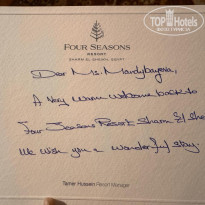 TopHotels
FOUR SEASONS
RESORT
SHARM EL SHEIKH, EGYPT
Dear Ms.
A Very Warm welcome back to
Four Seasons Resort Sharm El She
We wish you a wonderful stay.
Tamer Hussein Resort Manager